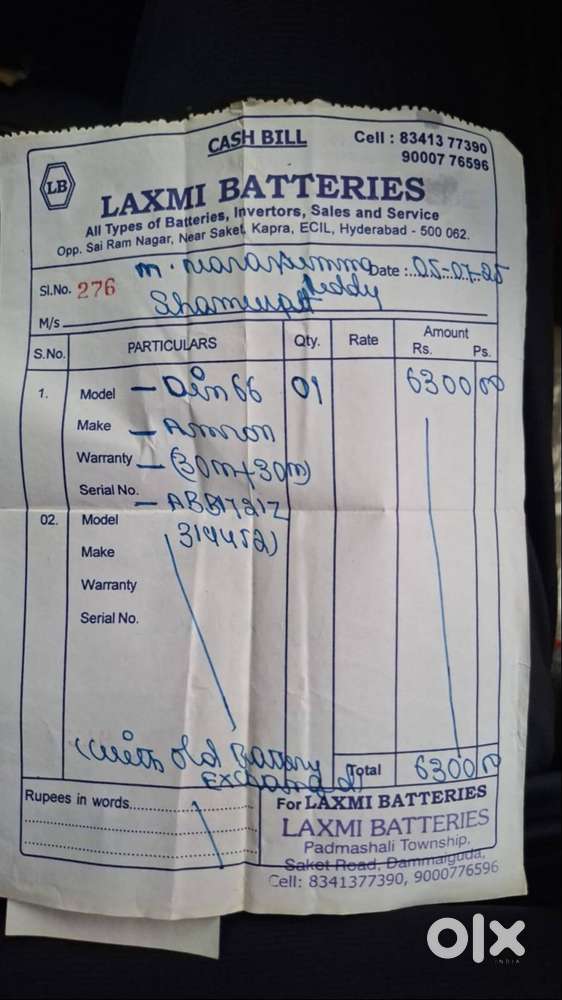 CASH BILL
Cell : 83413 77390
90007 76596
LB
LAXMI BATTERIES
All Types of Batteries, Invertors, Sales and Service
Opp. Sai Ram Nagar, Near Saket, Kapra, ECIL, Hyderabad - 500 062.
Sl.No. 276 Date :..05-07-25
Reddy
M/s
S.No. PARTICULARS Qty. Rate Amount
Rs. Ps.
1. Model - Din 66 01 6300 00
Make - Amron
Warranty - (30m+30m)
Serial No.
02. Model
Make
Warranty
Serial No.
(with old Battery
Exchanged)
Total 6300 00
Rupees in words
For LAXMI BATTERIES
LAXMI BATTERIES
Padmashali Township,
Saket Road, Dammaiguda,
Cell: 8341377390, 9000776596
olx
INDIA